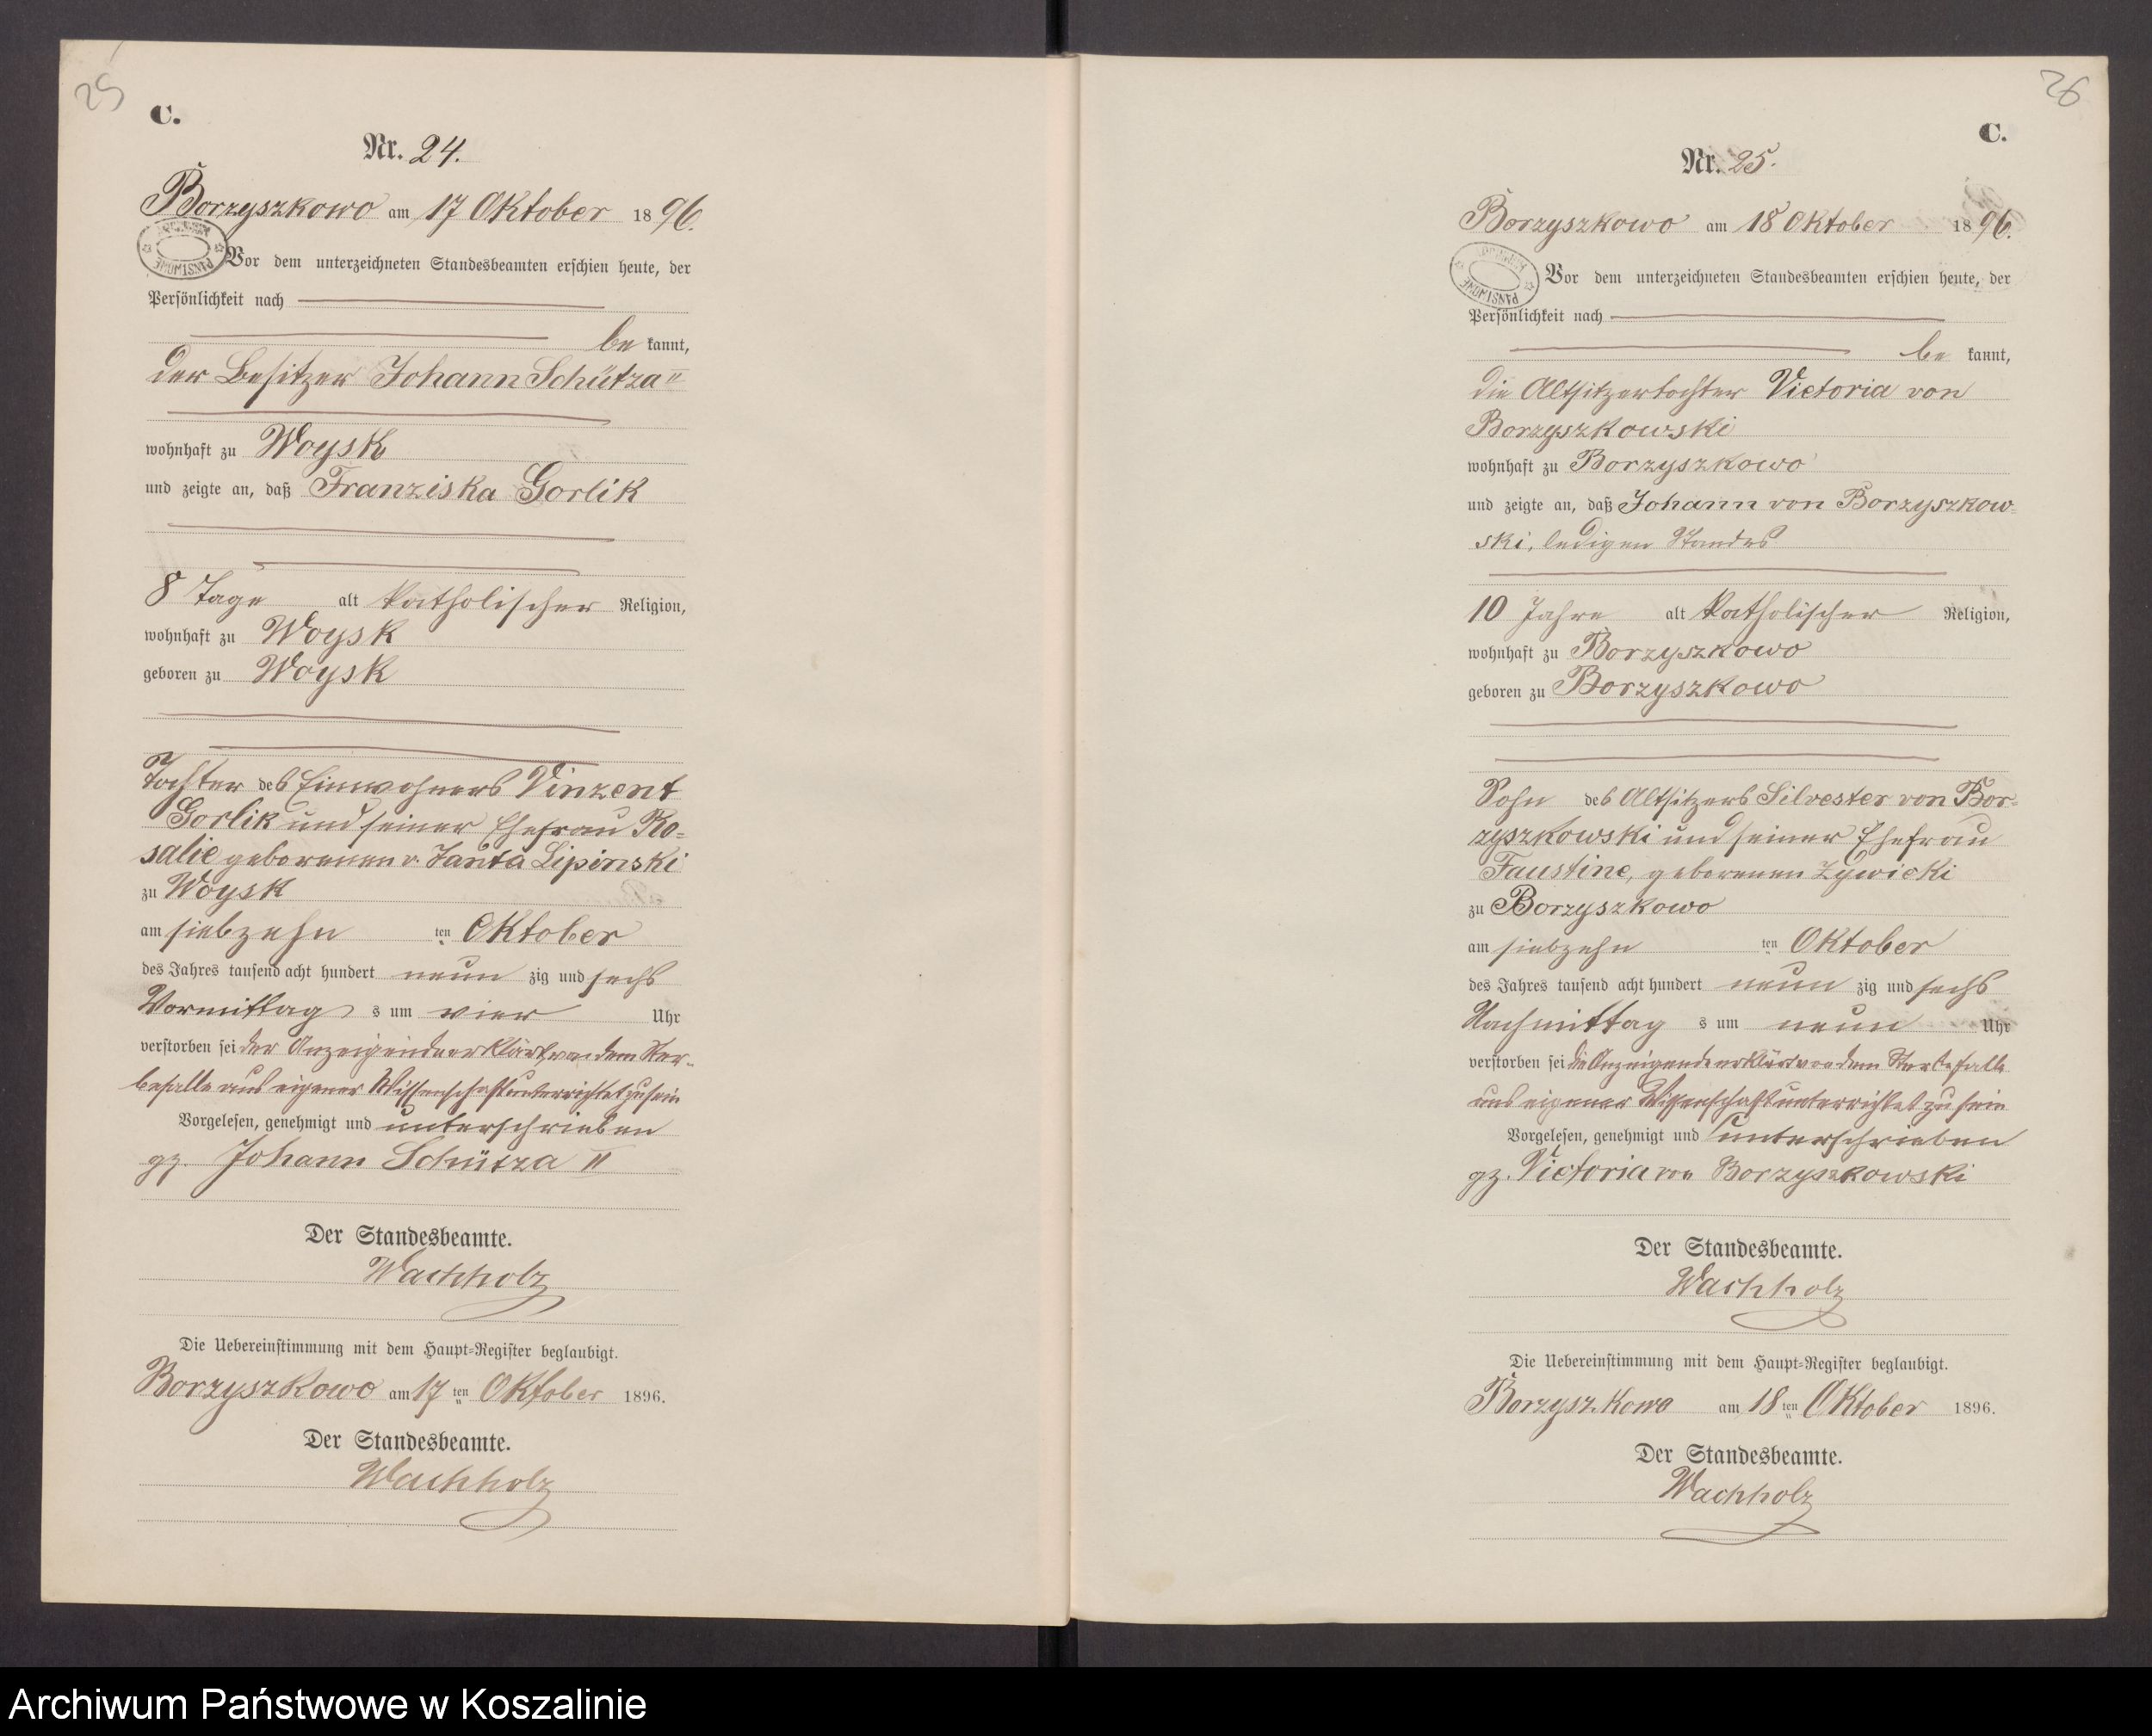 25
C.
Nr. 24.
Borzyszkowo am 17 Oktober 1896.
Vor dem unterzeichneten Standesbeamten erschien heute, der
Persönlichkeit nach
be kannt,
der Besitzer Johann Schütza II
wohnhaft zu Woysk
und zeigte an, daß Franziska Gorlik
8 Tage alt katholischer Religion,
wohnhaft zu Woysk
geboren zu Woysk
Tochter des Einwohners Vinzent
Gorlik und seiner Ehefrau Ro=
salie geborenen v. Janta Lipinski
zu Woysk
am siebzehn ten Oktober
des Jahres tausend acht hundert neun zig und sechs
Vormittag s um vier Uhr
verstorben sei der Anzeigende erklärt, von dem Ster-
befalle aus eigener Wissenschaft unterrichtet zu sein
Vorgelesen, genehmigt und unterschrieben
gz. Johann Schütza II
Der Standesbeamte.
Wachholz
Die Uebereinstimmung mit dem Haupt=Register beglaubigt.
Borzyszkowo am 17 ten Oktober 1896.
Der Standesbeamte.
Wachholz
26
C.
Nr. 25.
Borzyszkowo am 18 Oktober 1896.
Vor dem unterzeichneten Standesbeamten erschien heute, der
Persönlichkeit nach
be kannt,
die Altsitzertochter Victoria von
Borzyszkowski
wohnhaft zu Borzyszkowo
und zeigte an, daß Johann von Borzyszkow=
ski, ledigen Standes
10 Jahre alt katholischer Religion,
wohnhaft zu Borzyszkowo
geboren zu Borzyszkowo
Sohn des Altsitzers Silvester von Bor=
zyszkowski und seiner Ehefrau
Faustine, geborenen Zywicki
zu Borzyszkowo
am siebzehn ten Oktober
des Jahres tausend acht hundert neun zig und sechs
Nachmittag s um neun Uhr
verstorben sei die Anzeigende erklärt von dem Sterbefalle
aus eigener Wissenschaft unterrichtet zu sein
Vorgelesen, genehmigt und unterschrieben
gz. Victoria von Borzyszkowski
Der Standesbeamte.
Wachholz
Die Uebereinstimmung mit dem Haupt=Register beglaubigt.
Borzyszkowo am 18 ten Oktober 1896.
Der Standesbeamte.
Wachholz
Archiwum Państwowe w Koszalinie